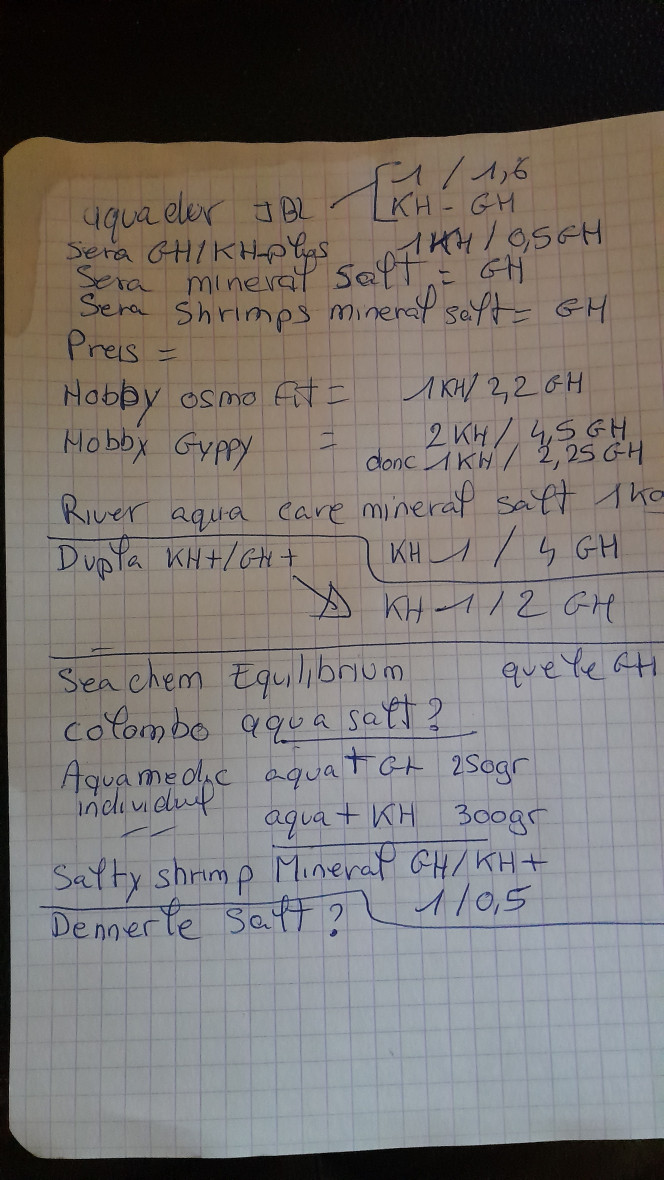 1 / 1,6
aquadur JBL KH - GH
Sera GH/KH-plus 1KH / 0,5GH
Sera mineral salt = GH
Sera Shrimps mineral salt = GH
Preis =
Hobby osmo fit = 1KH/ 2,2 GH
Hobby Guppy = 2KH/ 4,5 GH
donc 1KH / 2,25GH
River aqua care mineral salt 1kg
Dupla KH+/GH+ KH 1 / 4 GH
KH 1 / 2 GH
=
Seachem Equilibrium que le GH
Colombo aqua salt?
Aquamedic aqua + GH 250gr
individuel
aqua + KH 300gr
Salty shrimp Mineral GH/KH+
1 / 0,5
Dennerle Salt?